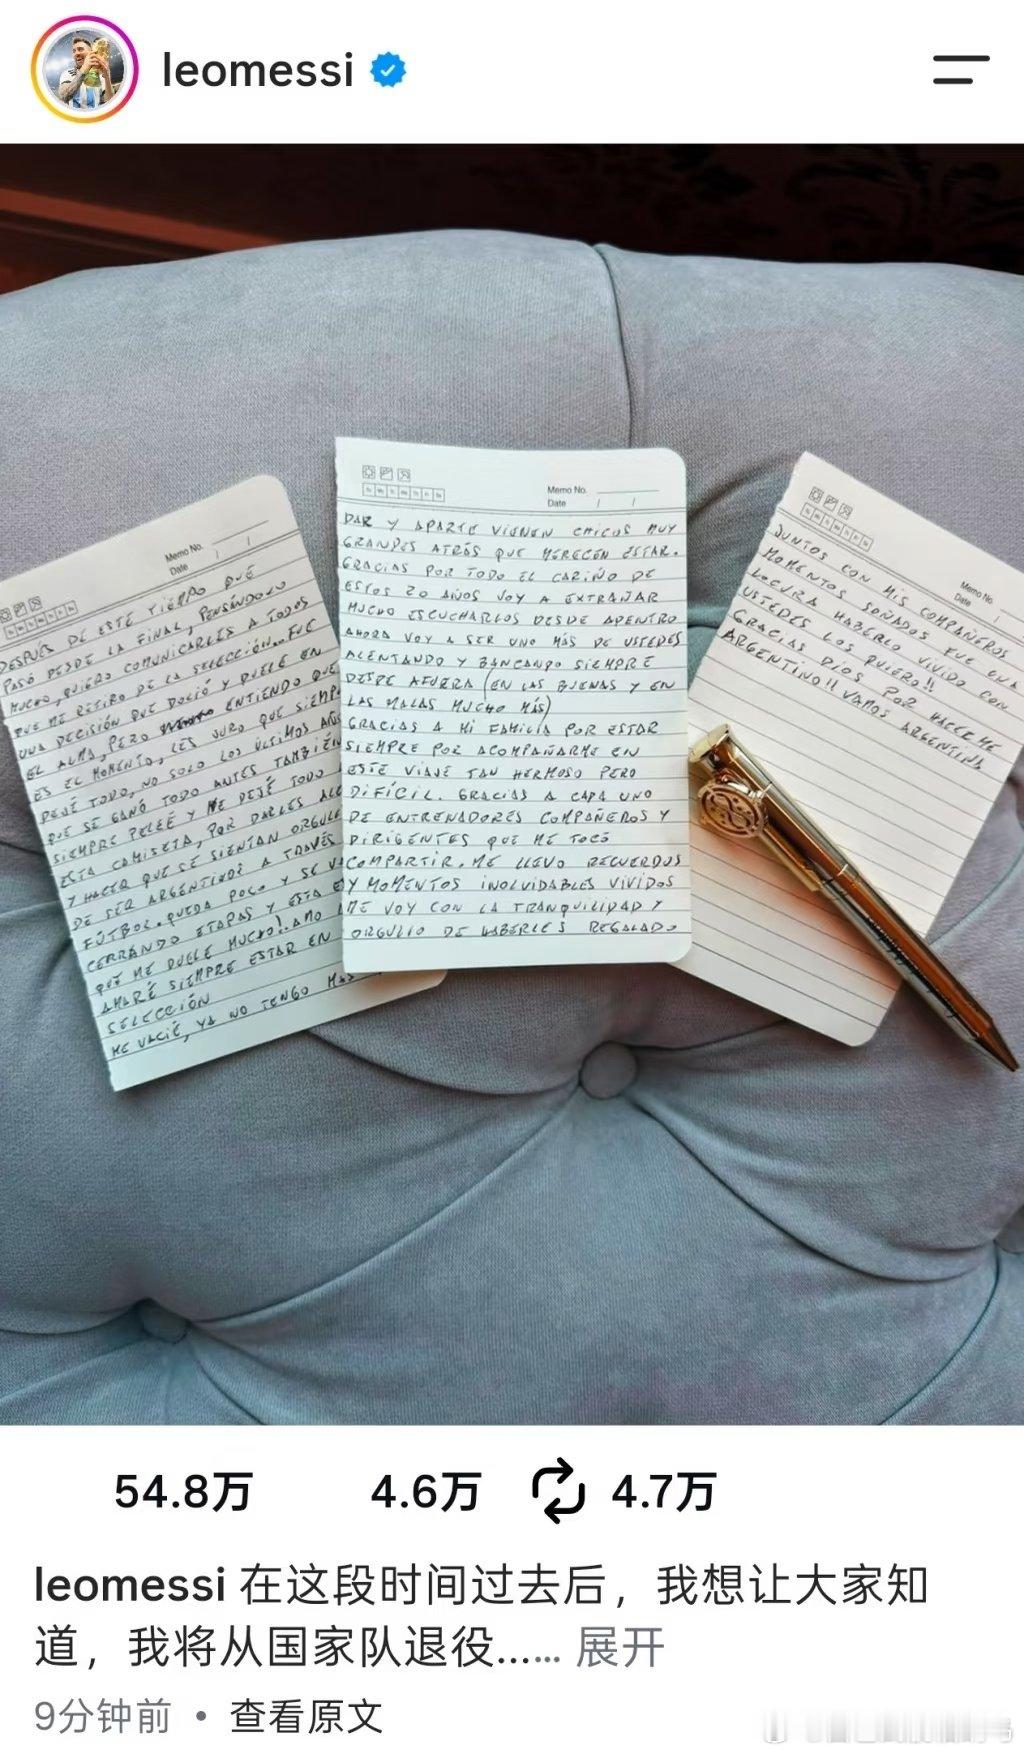 leomessi
Memo No.
Date / /
DESPUÉS DE ESTE TIEMPO QUE
PASÓ DESDE LA FINAL, PENSÁNDOLO
MUCHO, QUIERO COMUNICARLES A TODOS
QUE ME RETIRO DE LA SELECCIÓN... FUE
UNA DECISIÓN QUE DOLIÓ Y DUELE EN
EL ALMA, PERO ENTIENDO QUE
ES EL MOMENTO, LES JURO QUE SIEMP
DEJÉ TODO, NO SOLO LOS ÚLTIMOS AÑOS
QUE SE GANÓ TODO ANTES TAMBIÉN
SIEMPRE PELEÉ Y ME DEJÉ TODO
ESTA CAMISETA, POR DARLES ALE
Y HACER QUE SE SIENTAN ORGULL
DE SER ARGENTINOS A TRAVÉS
FÚTBOL. QUEDA POCO Y SE V
CERRANDO ETAPAS Y ESTA E
QUE ME DUELE MUCHO!! AMO
AMARÉ SIEMPRE ESTAR EN
SELECCIÓN
ME VACIÉ, YA NO TENGO MÁS
Memo No.
Date / /
DAR Y APARTE VIENEN CHICOS MUY
GRANDES ATRÁS QUE MERECEN ESTAR.
GRACIAS POR TODO EL CARIÑO DE
ESTOS 20 AÑOS VOY A EXTRAÑAR
MUCHO ESCUCHARLOS DESDE ADENTRO
AHORA VOY A SER UNO MÁS DE USTEDES
ALENTANDO Y BANCANDO SIEMPRE
DESDE AFUERA (EN LAS BUENAS Y EN
LAS MALAS MUCHO MÁS)
GRACIAS A MI FAMILIA POR ESTAR
SIEMPRE POR ACOMPAÑARME EN
ESTE VIAJE TAN HERMOSO PERO
DIFÍCIL. GRACIAS A CADA UNO
DE ENTRENADORES COMPAÑEROS Y
DIRIGENTES QUE ME TOCÓ
COMPARTIR. ME LLEVO RECUERDOS
Y MOMENTOS INOLVIDABLES VIVIDOS
ME VOY CON LA TRANQUILIDAD Y
ORGULLO DE HABERLES REGALADO
Memo No.
Date /
JUNTOS CON MIS COMPAÑEROS
MOMENTOS SOÑADOS FUE UNA
LOCURA HABERLO VIVIDO CON
USTEDES LOS QUIERO!!
GRACIAS DIOS POR HACERME
ARGENTINO!! VAMOS ARGENTINA
54.8万 4.6万 4.7万
leomessi 在这段时间过去后，我想让大家知
道，我将从国家队退役...... 展开
9分钟前 • 查看原文